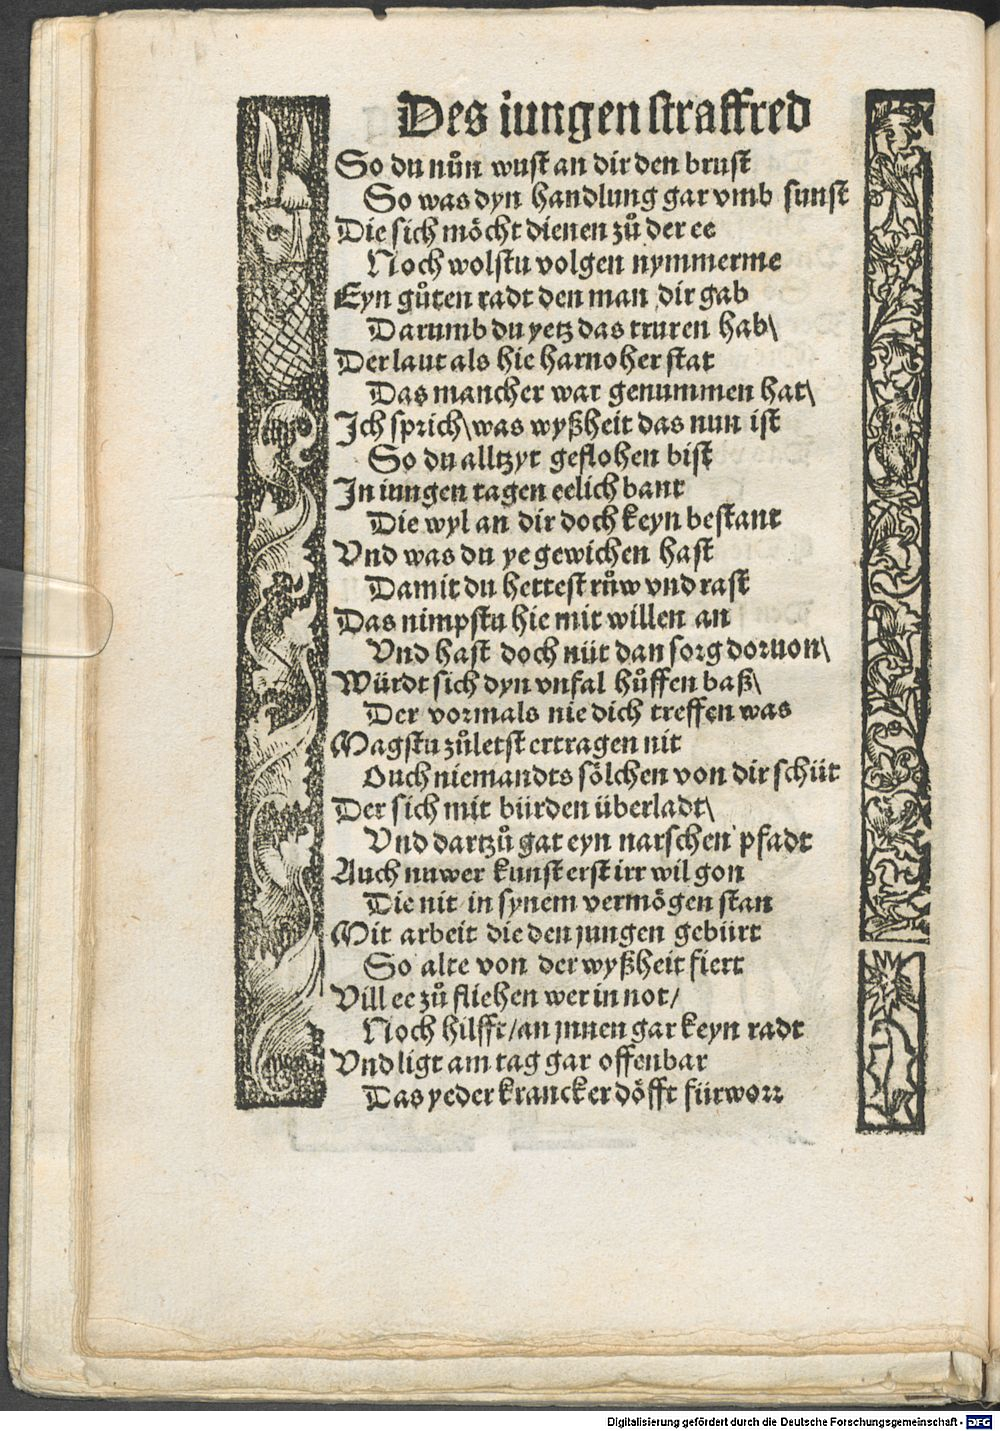 Des iungen straffred
So du nůn wust an dir den brust
So was dyn handlung gar vmb sunst
Die sich möcht dienen zů der ee
Noch wolstu volgen nymmerme
Eyn gůten radt den man dir gab
Darumb du yetz das truren hab\
Der laut als hie harnoher stat
Das mancher war genummen hat\
Ich sprich\ was wyßheit das nun ist
So du alltzyt geflohen bist
In iungen tagen eelich bant
Die wyl an dir doch keyn bestant
Vnd was du ye gewichen hast
Damit du hettest růw vnd rast
Das nimpstu hie mit willen an
Vnd hast doch nüt dan sorg doruon\
Würdt sich dyn vnfal hůffen baß\
Der vormals nie dich treffen was
Magstu zůletst ertragen nit
Ouch niemandts sölchen von dir schüt
Der sich mit bürden überladt\
Vnd dartzů gat eyn narschen pfadt
Auch nuwer kunst erst irr wil gon
Die nit in synem vermögen stan
Mit arbeit die den jungen gebürt
So alte von der wyßheit fiert
Vill ee zů fliehen wer in not/
Noch hilfft/an jnnen gar keyn radt
Vnd ligt am tag gar offenbar
Das yeder krancker döfft fürworr
Digitalisierung gefördert durch die Deutsche Forschungsgemeinschaft - DFG